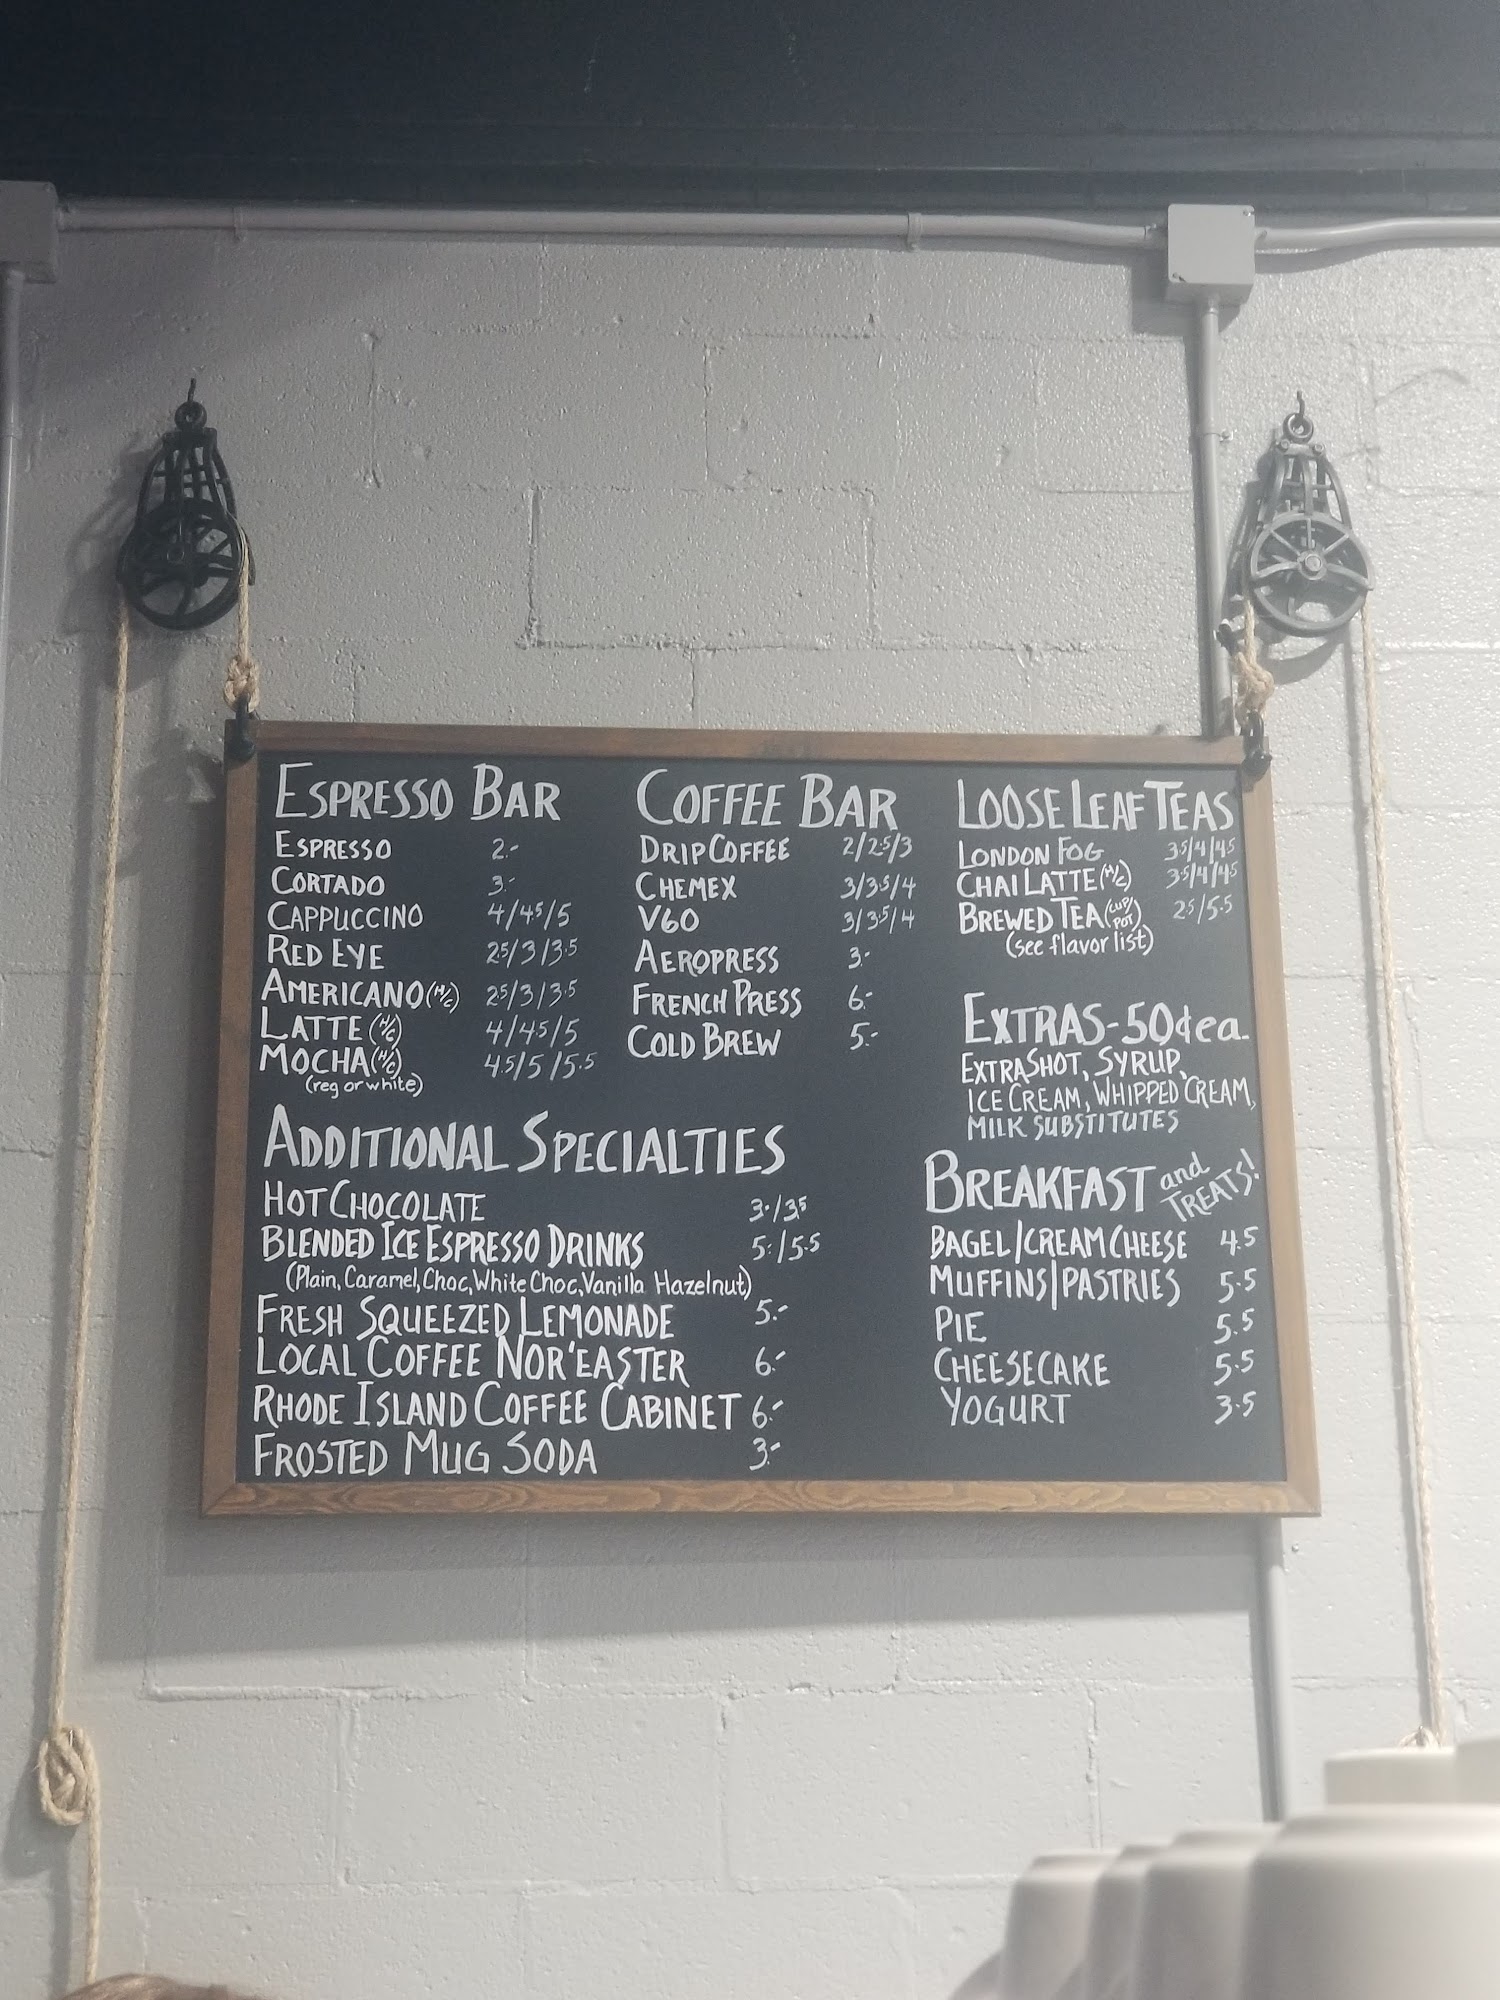 ESPRESSO BAR
ESPRESSO 2.-
CORTADO 3.-
CAPPUCCINO 4/4.5/5
RED EYE 2.5/3/3.5
AMERICANO (H/C) 2.5/3/3.5
LATTE (H/C) 4/4.5/5
MOCHA (H/C) 4.5/5/5.5
(reg or white)
COFFEE BAR
DRIP COFFEE 2/2.5/3
CHEMEX 3/3.5/4
V60 3/3.5/4
AEROPRESS 3.-
FRENCH PRESS 6.-
COLD BREW 5.-
LOOSE LEAF TEAS
LONDON FOG 3.5/4/4.5
CHAI LATTE (H/C) 3.5/4/4.5
BREWED TEA (CUP/POT) 2.5/5.5
(see flavor list)
EXTRAS - 50¢ ea.
EXTRA SHOT, SYRUP,
ICE CREAM, WHIPPED CREAM,
MILK SUBSTITUTES
ADDITIONAL SPECIALTIES
HOT CHOCOLATE 3./3.5
BLENDED ICE ESPRESSO DRINKS 5./5.5
(Plain, Caramel, Choc, White Choc, Vanilla Hazelnut)
FRESH SQUEEZED LEMONADE 5.-
LOCAL COFFEE NOR'EASTER 6.-
RHODE ISLAND COFFEE CABINET 6.-
FROSTED MUG SODA 3.-
BREAKFAST and TREATS!
BAGEL/CREAM CHEESE 4.5
MUFFINS/PASTRIES 5.5
PIE 5.5
CHEESECAKE 5.5
YOGURT 3.5